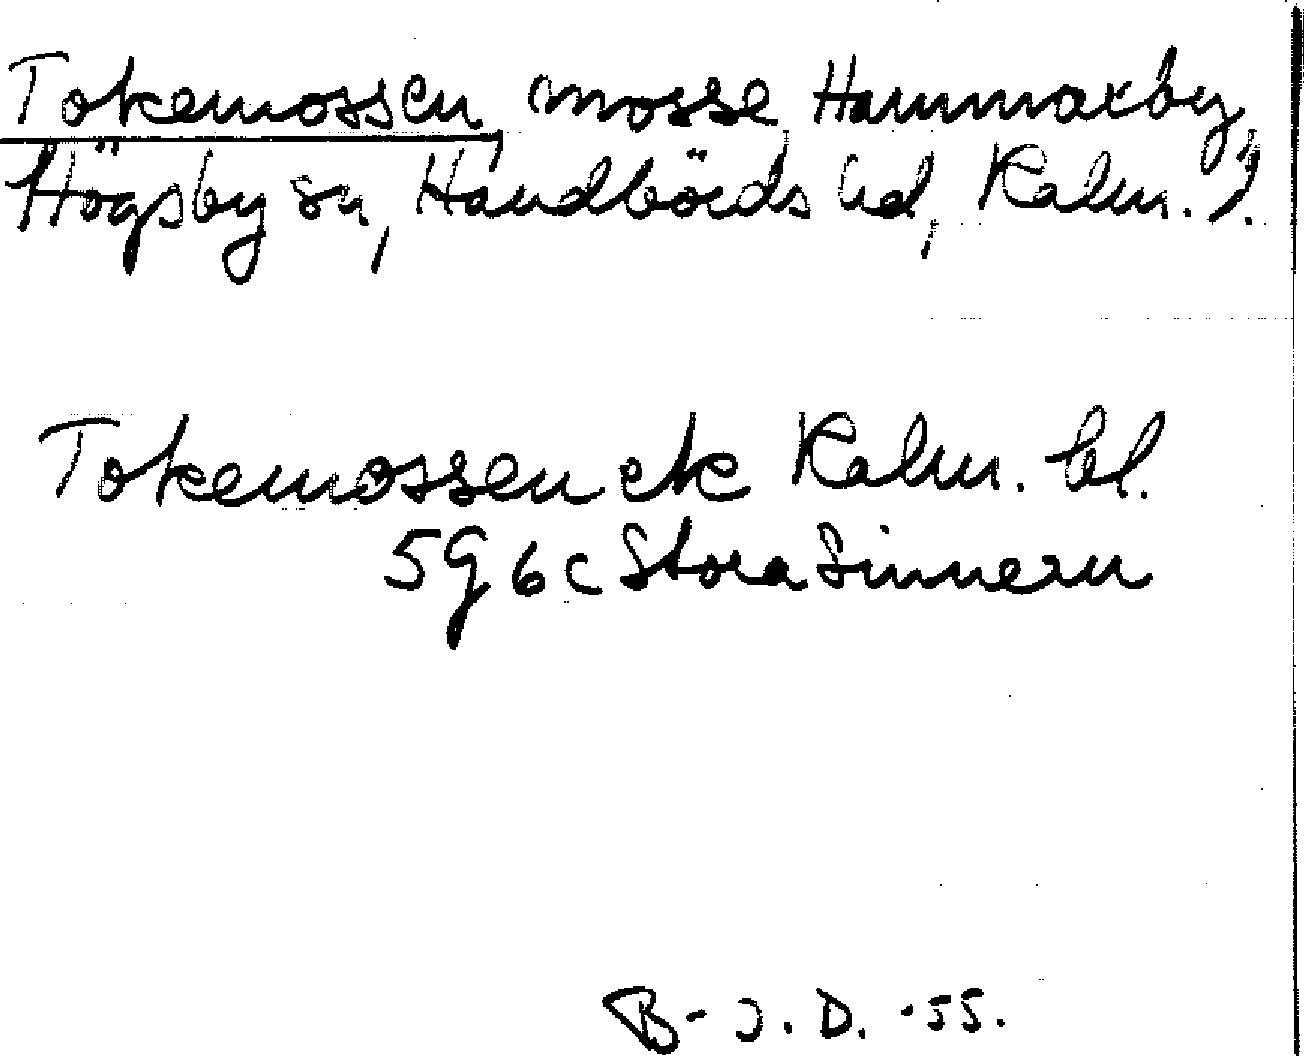 Tokemossen, mosse, Hammarby,
Högsby sn, Handbörds hd, Kalm. l.
Tokemossen ek Kalm. bl.
5G 6c Stora Sinnern
B-J.D. -55.